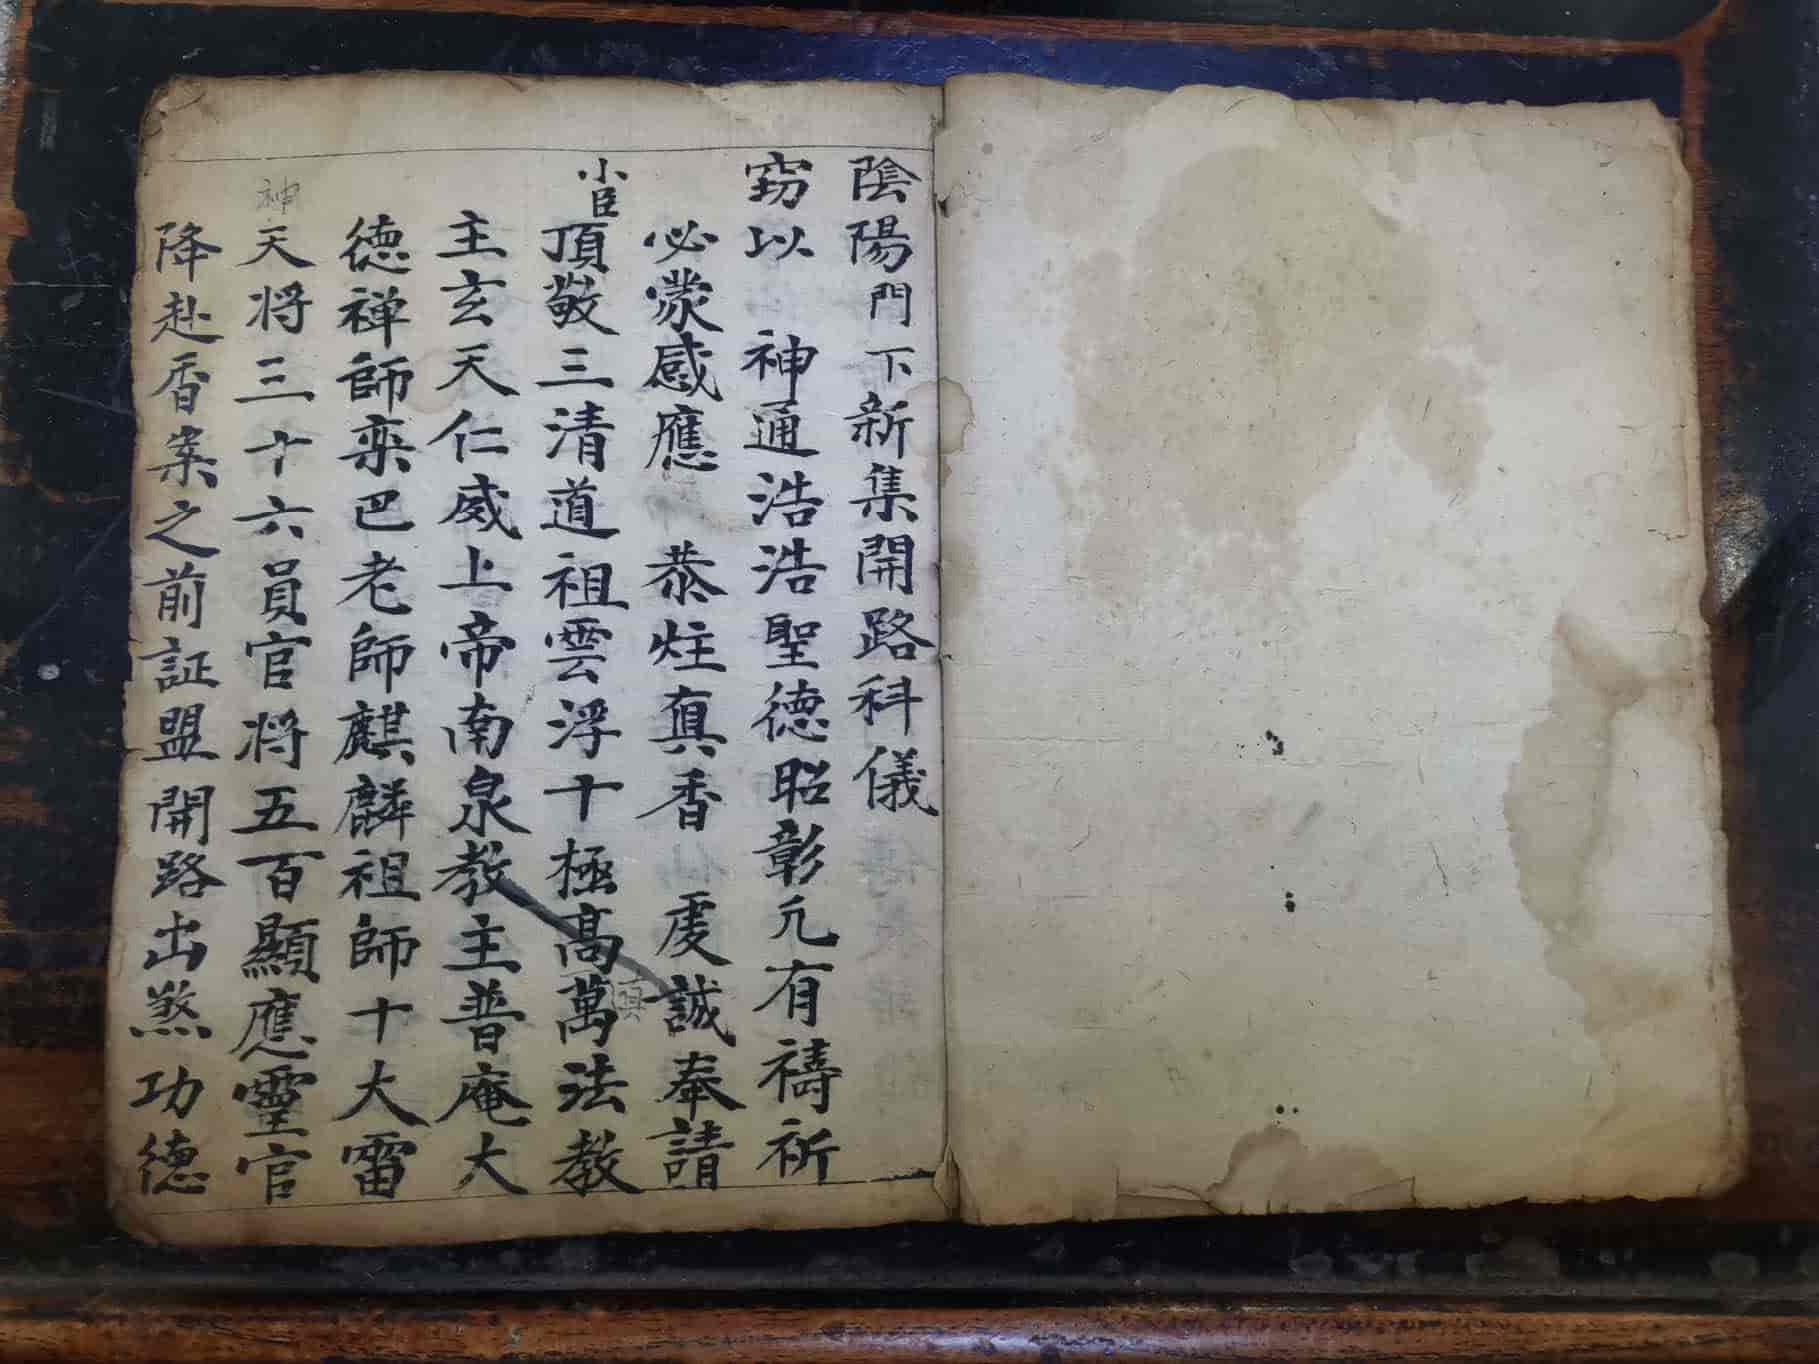 陰陽門下新集開路科儀
窃以 神通浩浩聖德昭彰凢有禱祈
必蒙感應 恭炷真香 虔誠奉請
小臣頂敬三清道祖雲浮十極高萬法教
真
主玄天仁威上帝南泉教主普庵大
德禅師栾巴老師麒麟祖師十大雷
神天将三十六員官将五百顯應霊官
降赴香案之前証盟開路出煞功德